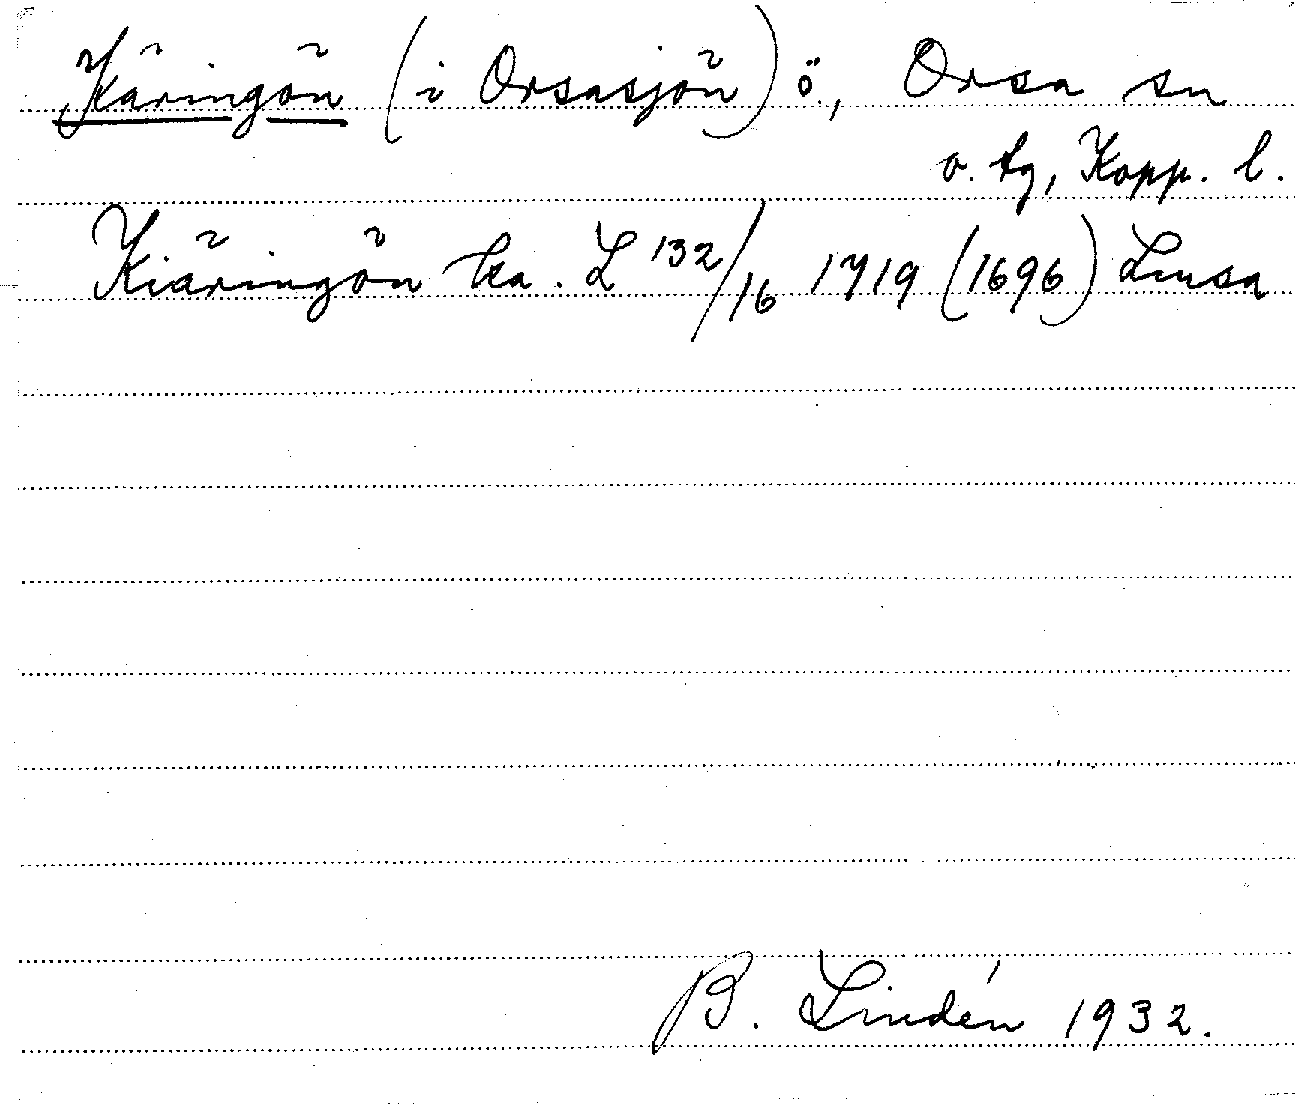 Käringön (i Orsasjön) ö, Orsa sn
o. tg, Kopp. l.
Kiäringön ka. L 132/16 1719 (1696) Lmsa
B. Lindén 1932.